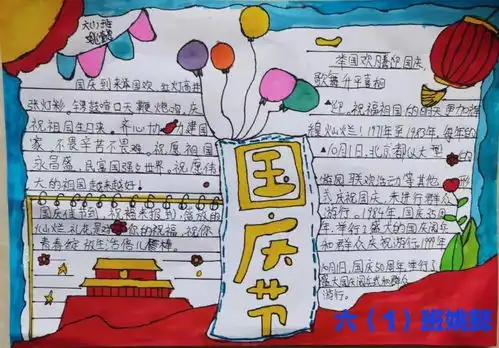 六(1)班
国庆到来举国欢,红灯高挂
张灯彩。锣鼓喧口天鞭炮鸣,庆
祝祖国生日来。齐心协力建国
家,不畏辛苦不畏难。祝愿祖国
永昌盛,民富国强乡世界。祝愿伟
大的祖国越来越好!
国庆佳节到,祝福来报到,绽放的
灿烂,礼花是对你的祝福,祝你
青春绽放生活倍儿棒棒。
国庆节
举国欢腾迎国庆
歌舞升平喜相
迎,祝福祖国的明天更加辉
煌灿烂!1971年至1983年,每年的
10月1日,北京都以大型的
游园联欢活动等其他形
式庆祝国庆,未进行群众
游行。1984年,国庆35周
年,举行了盛大的国庆阅兵
和群众庆祝游行。1999年
10月1日,国庆50周年,举行了
盛大国庆阅兵式和群众
游行。
六(1)班姚